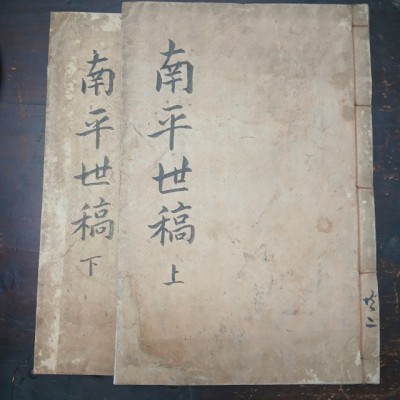 南平世稿
上
南平世稿
下
共二